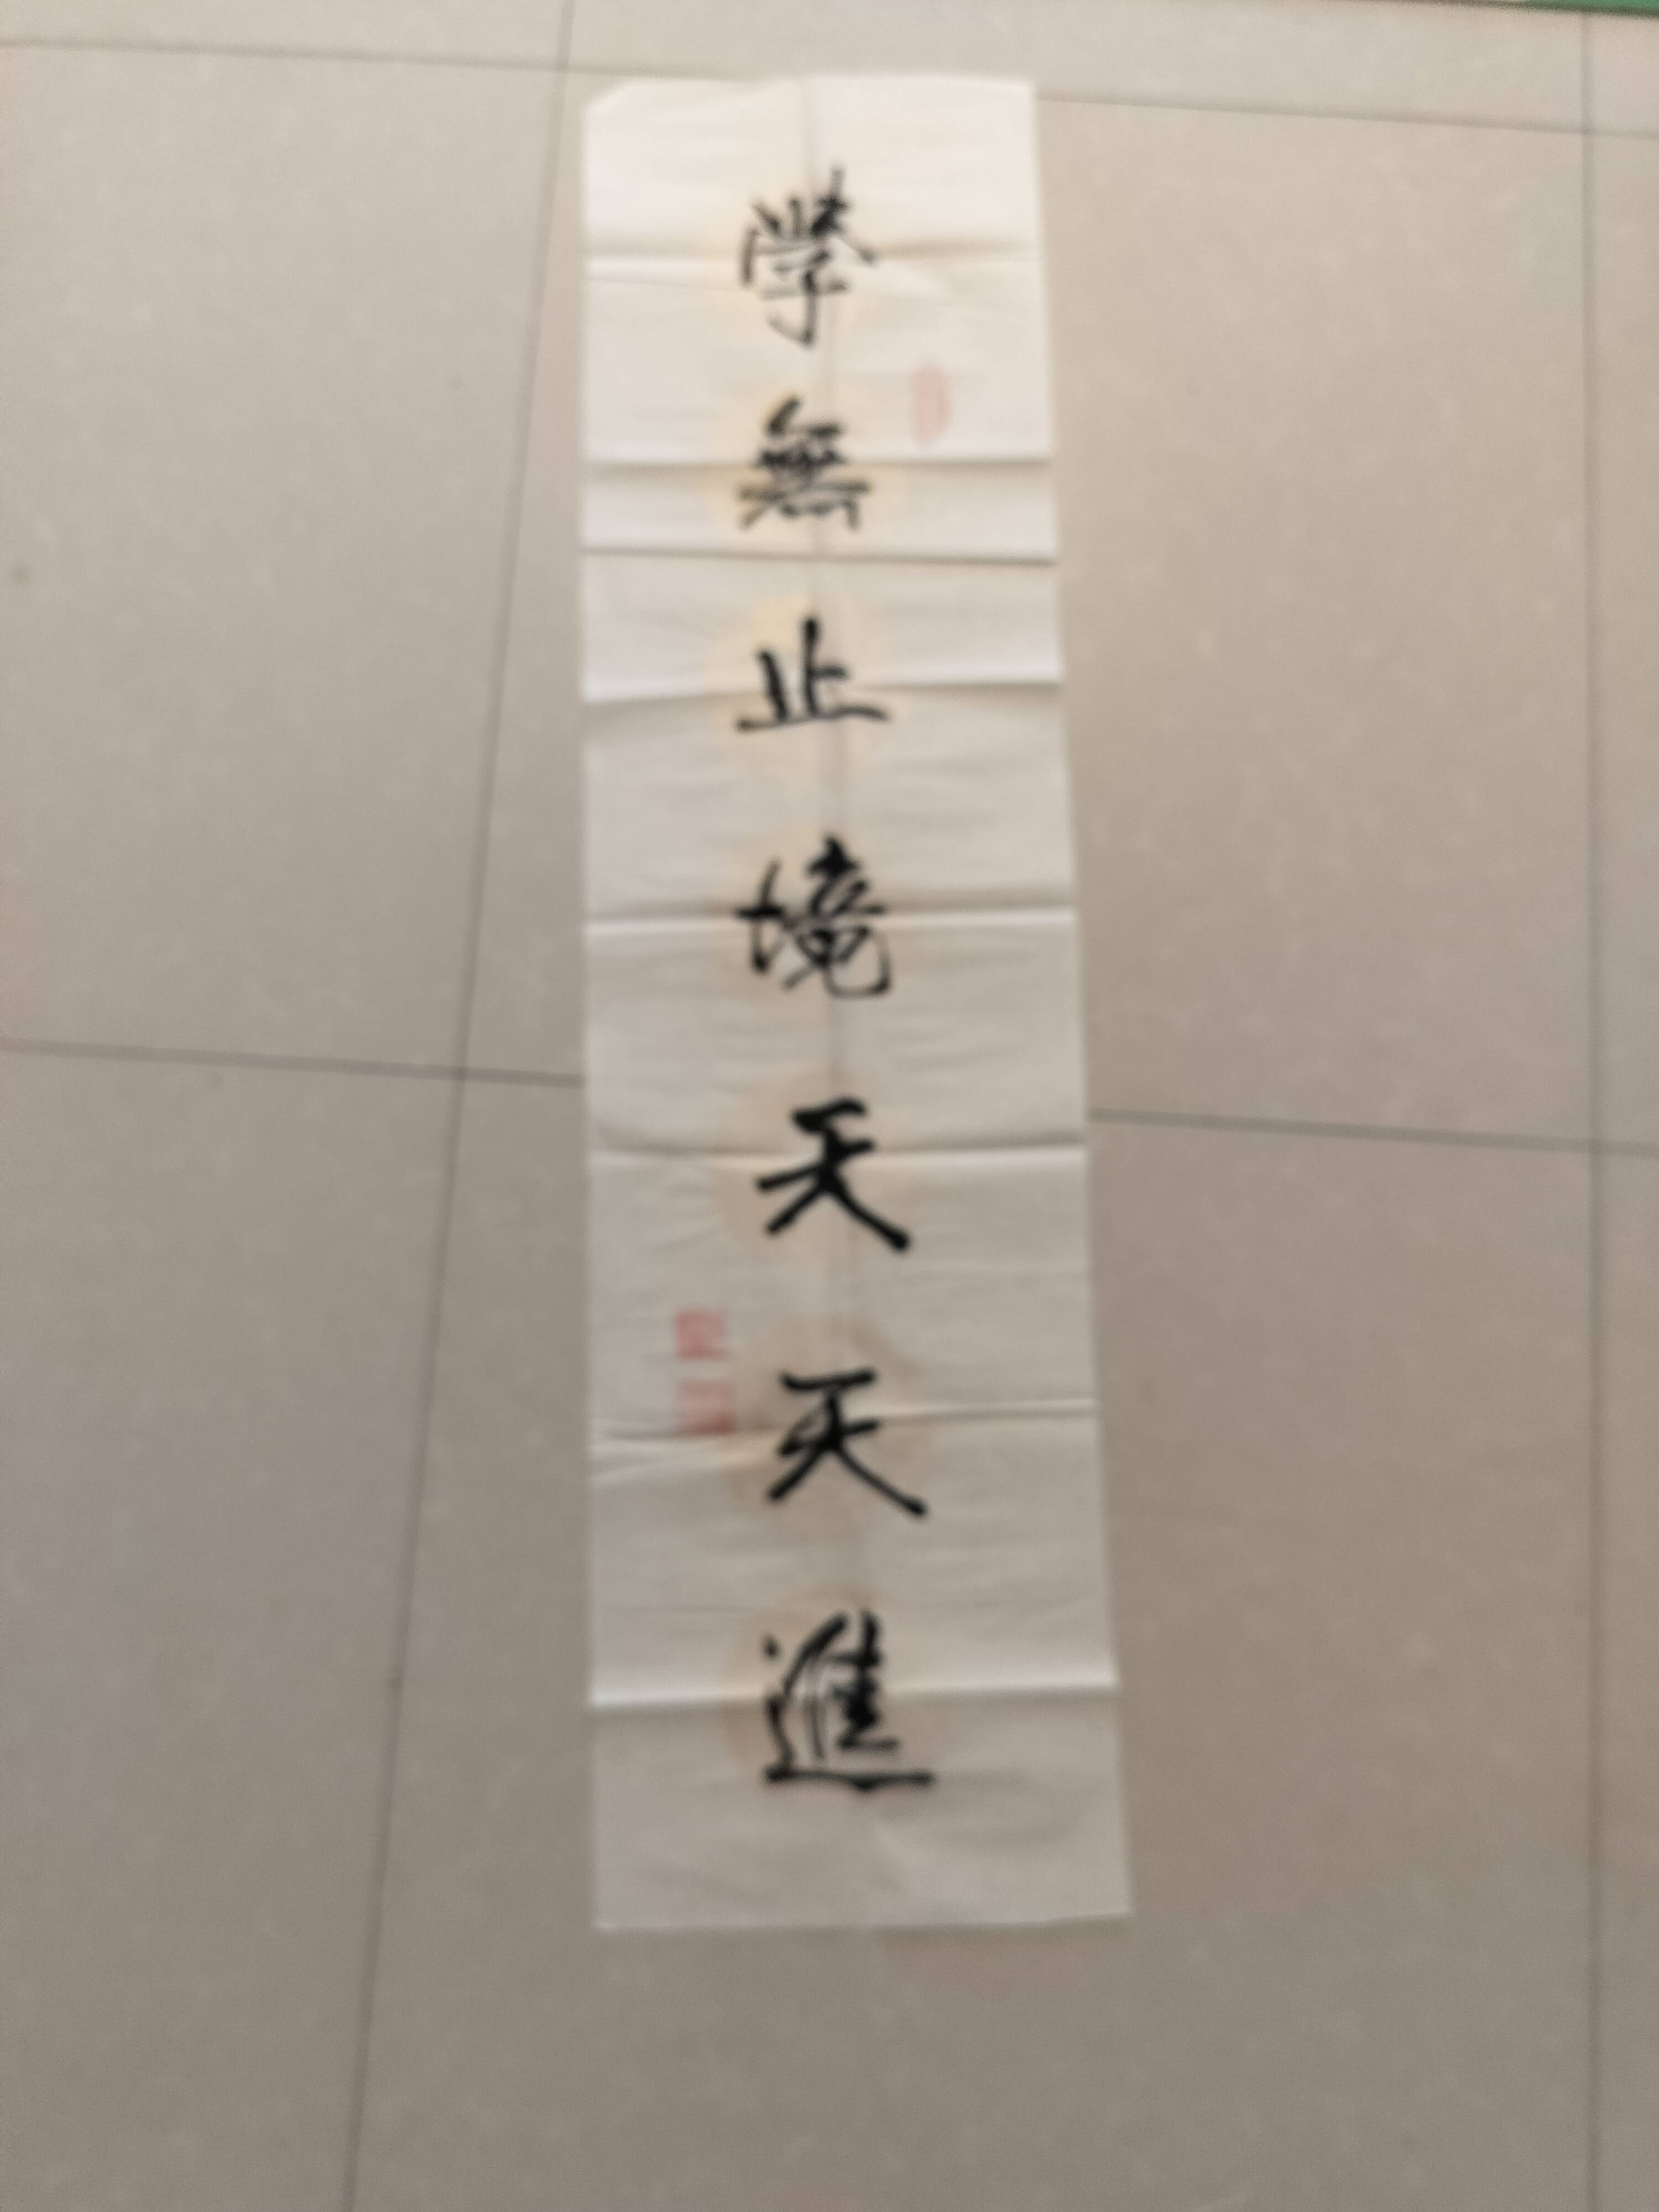 學無止境天天進